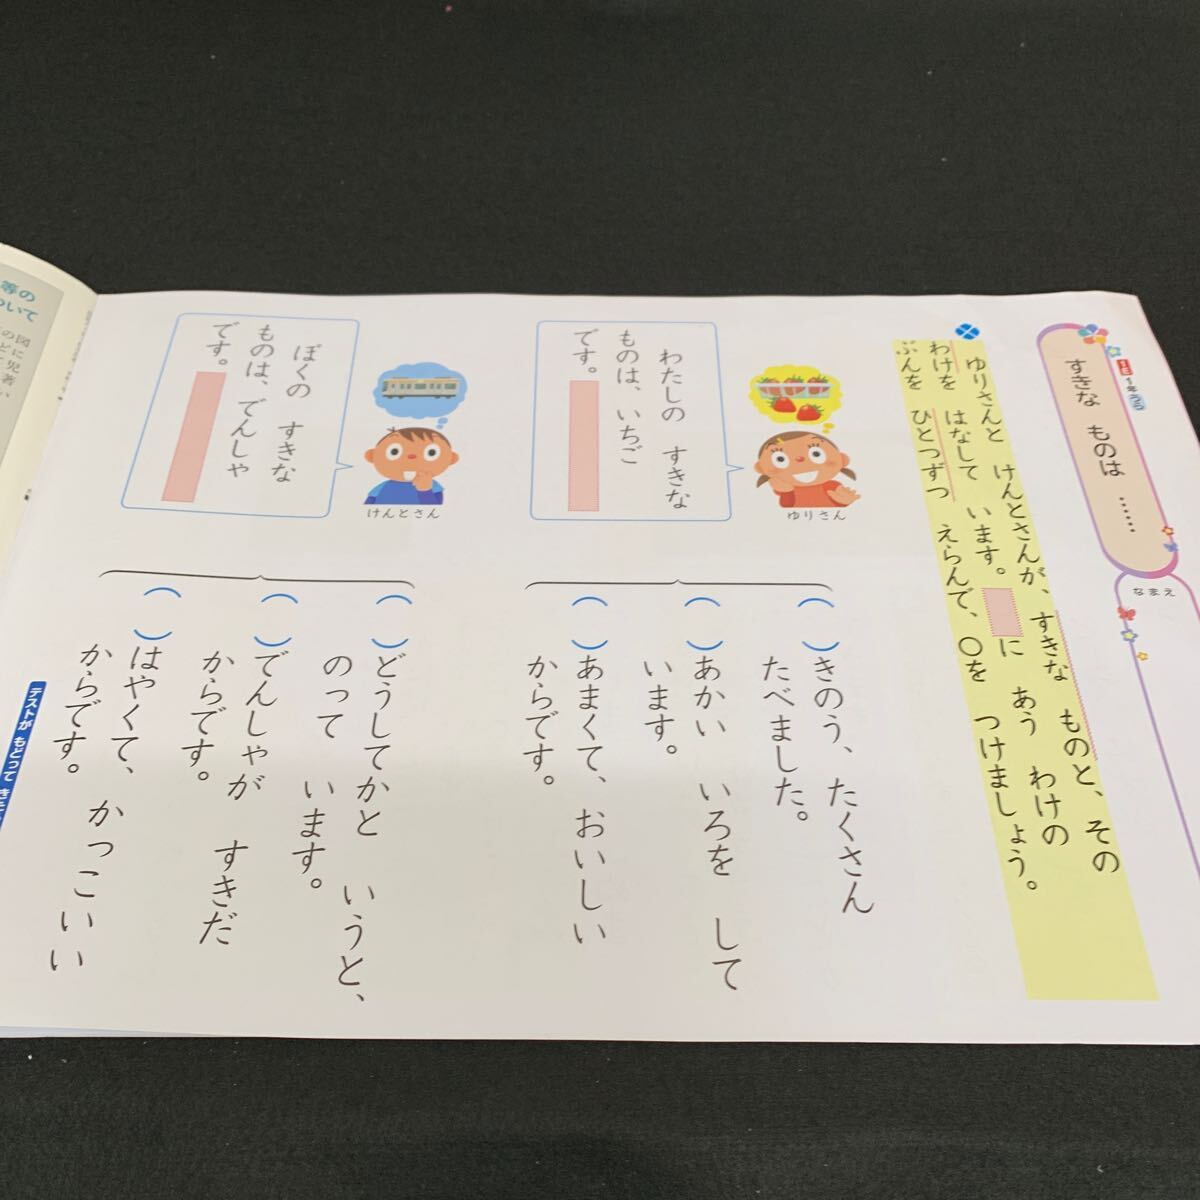 1年うら
すきな ものは ……
なまえ
ゆりさんと けんとさんが、すきな ものと、その
わけを はなして います。 に あう わけの
ぶんを ひとつずつ えらんで、○を つけましょう。
ゆりさん
わたしの すきな
ものは、いちご
です。
( )きのう、たくさん
たべました。
( )あかい いろを して
います。
( )あまくて、おいしい
からです。
けんとさん
ぼくの すきな
ものは、でんしゃ
です。
( )どうしてかと いうと、
のって います。
( )でんしゃが すきだ
からです。
( )はやくて、かっこいい
からです。
テストが もどって きた
等の
ついて